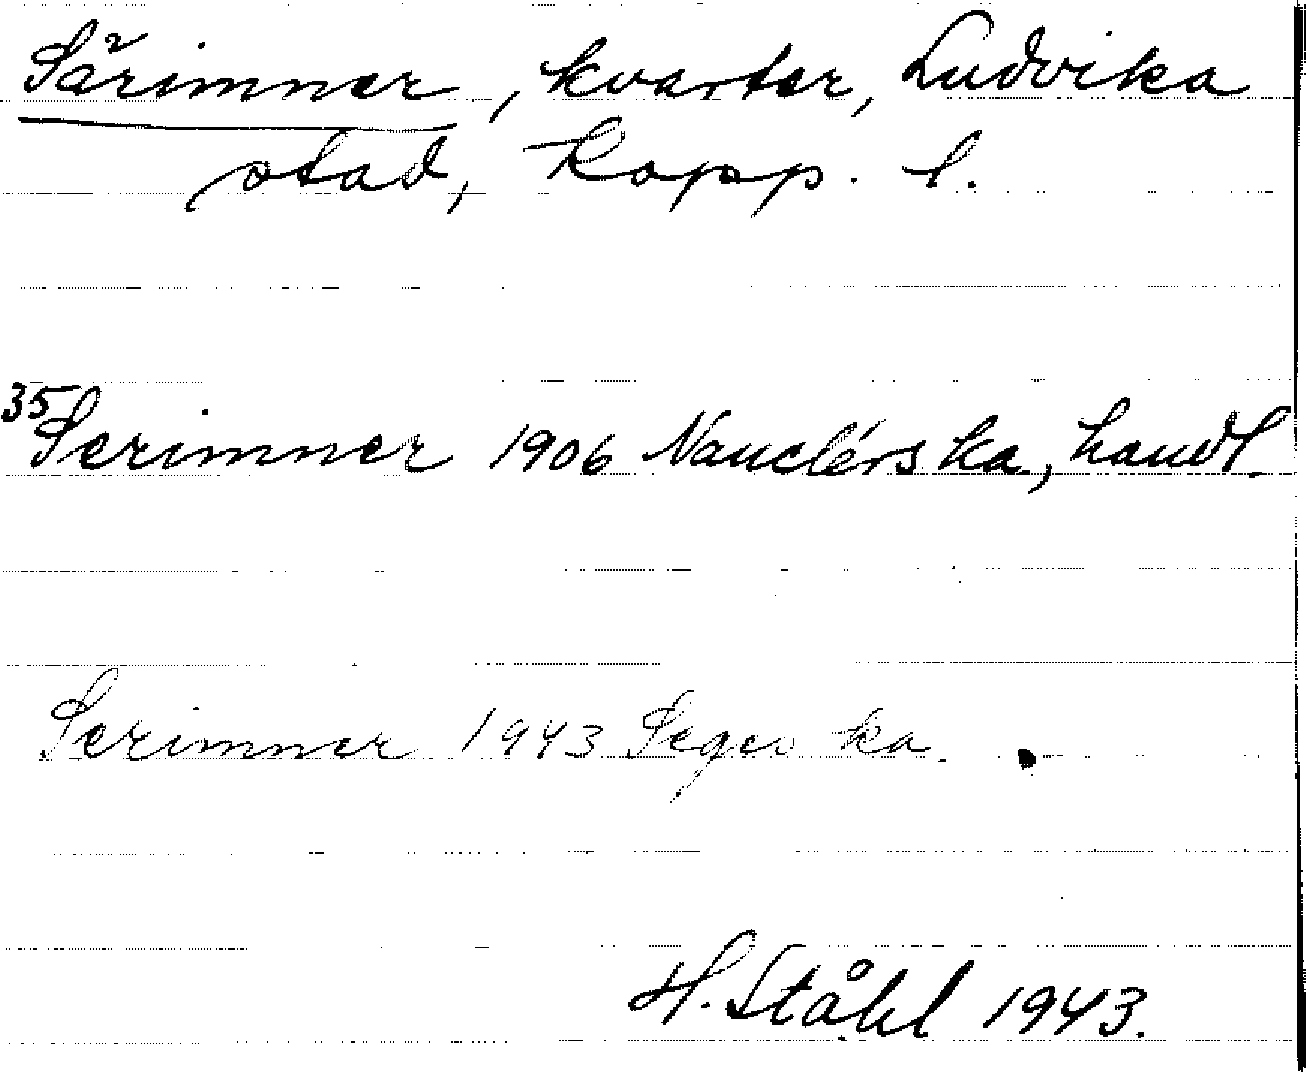 Särimner, kvarter, Ludvika
stad, Kopp. l.
35 Serimner 1906 Nauclérs ka, handl.
Serimner 1943 Seges ka.
H. Ståhl 1943.